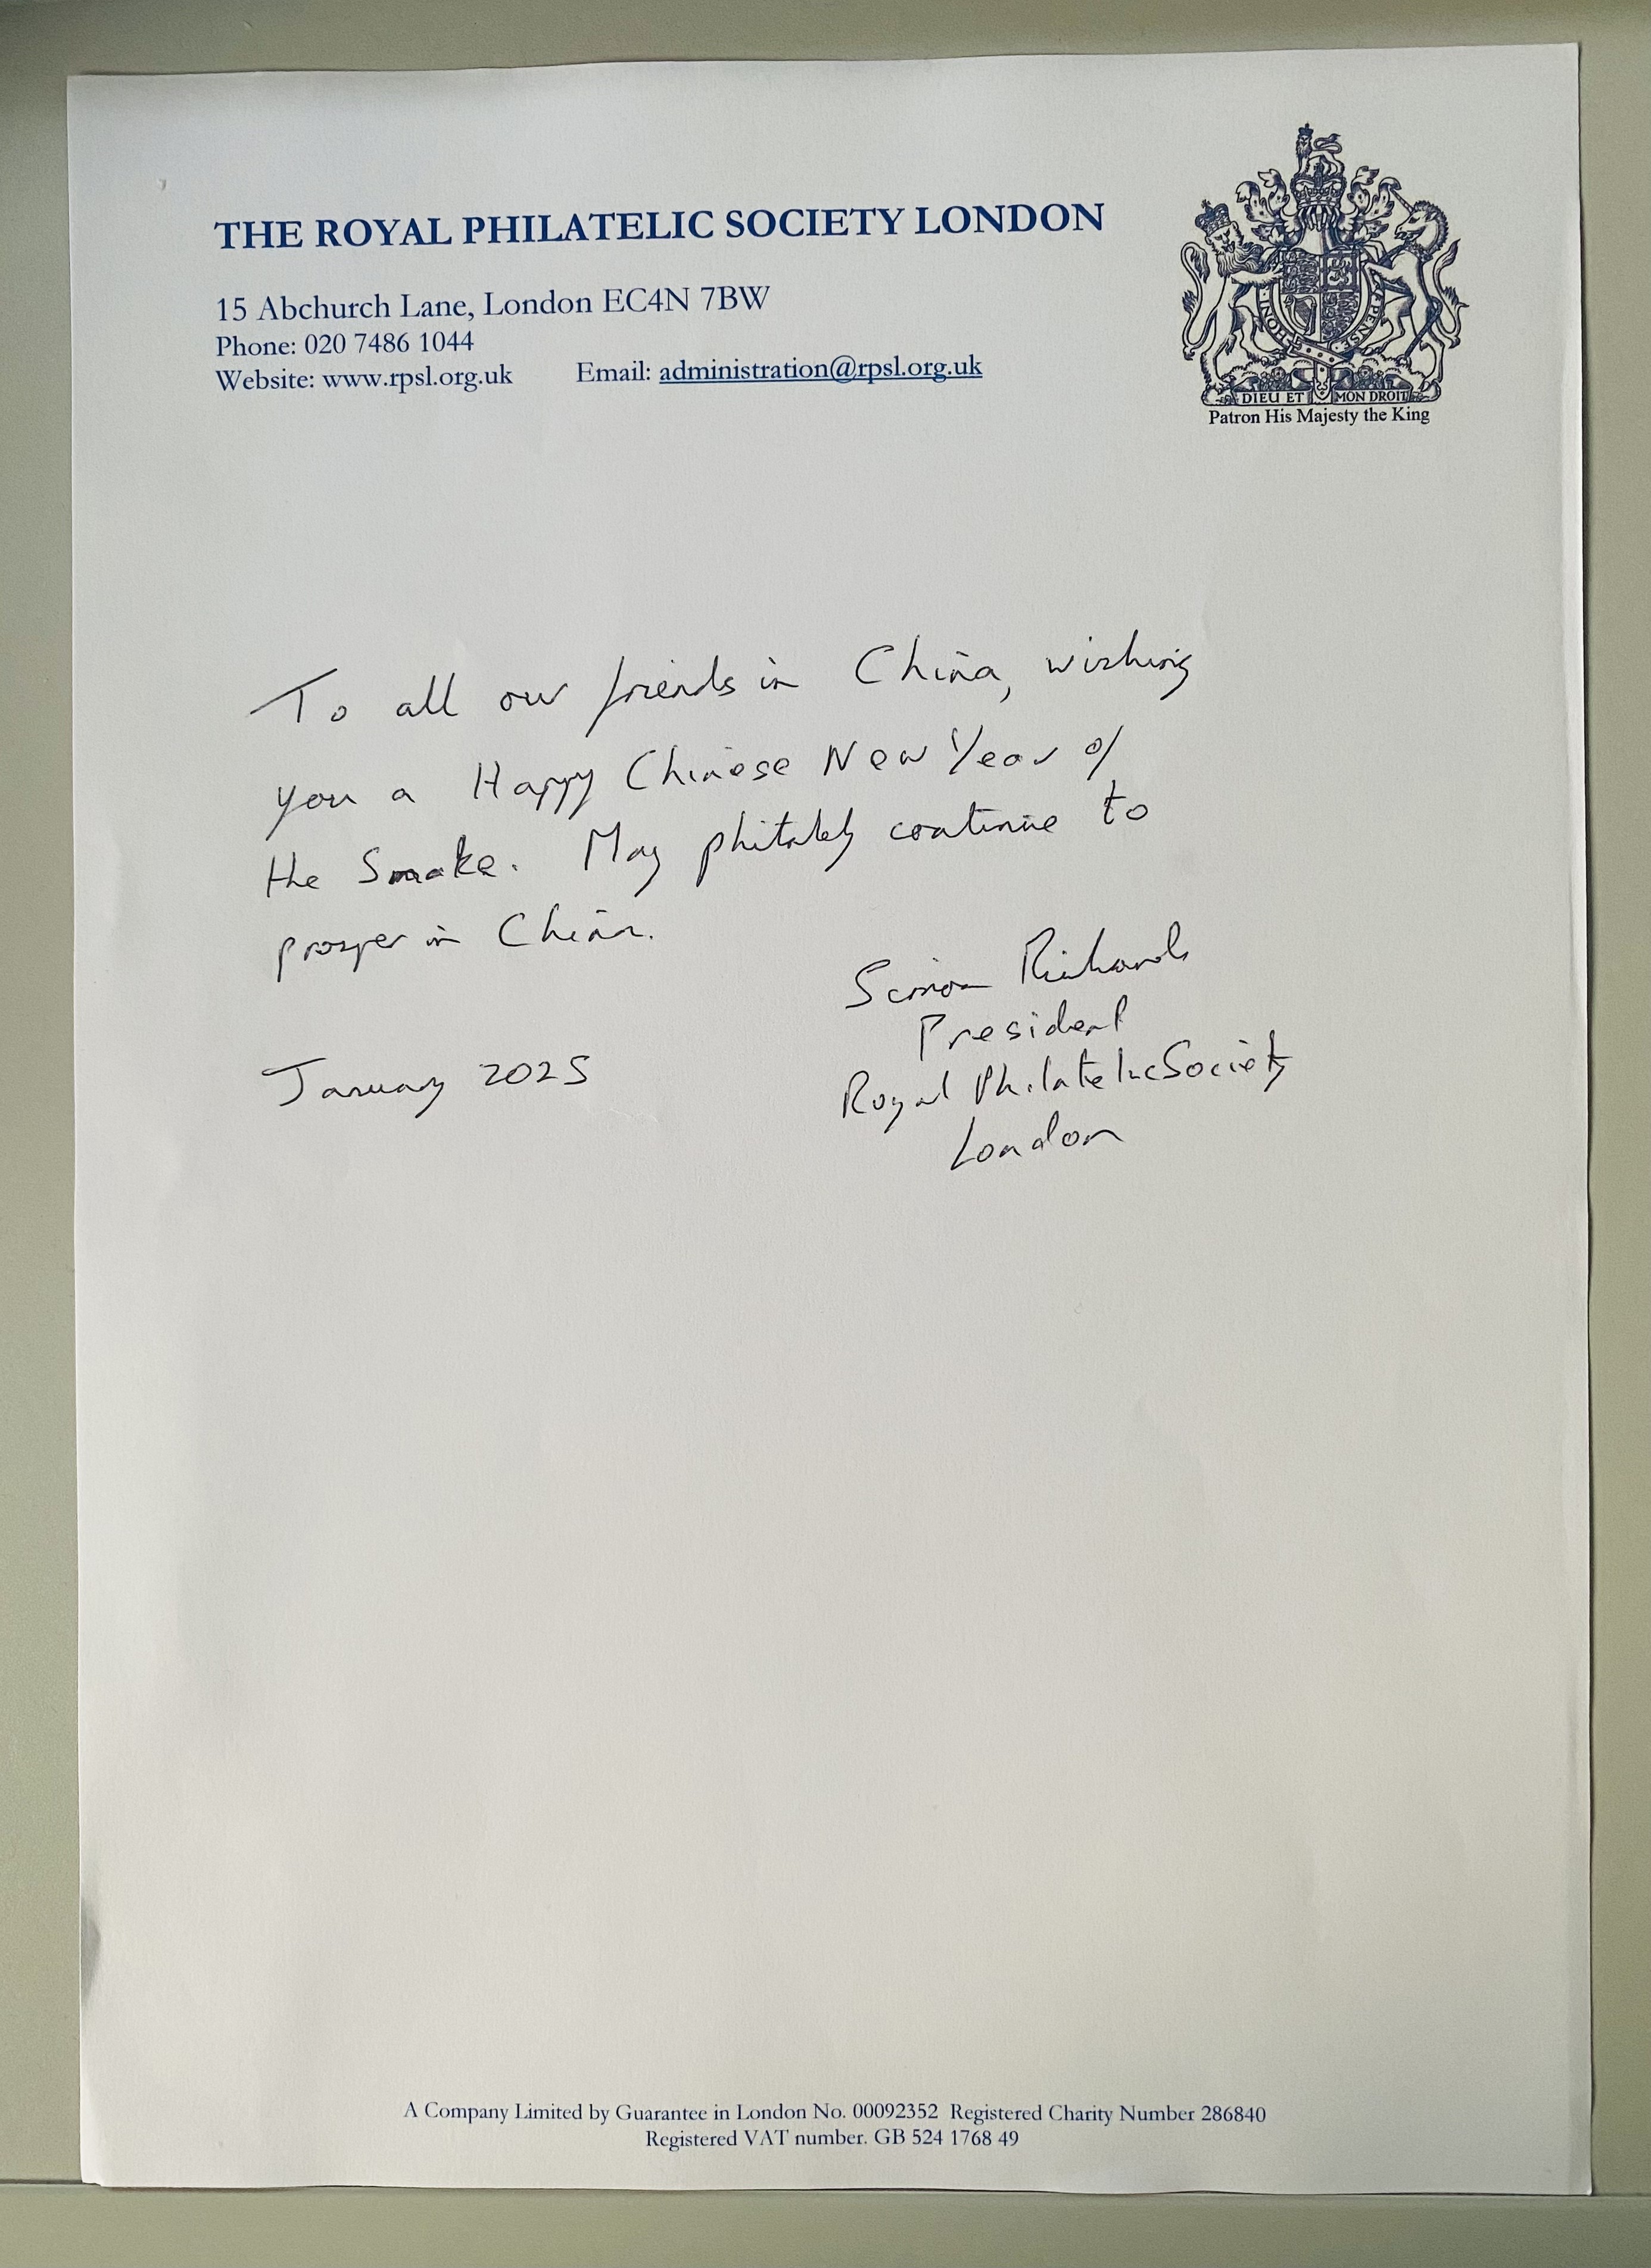 THE ROYAL PHILATELIC SOCIETY LONDON
15 Abchurch Lane, London EC4N 7BW
Phone: 020 7486 1044
Website: www.rpsl.org.uk Email: administration@rpsl.org.uk
DIEU ET MON DROIT
Patron His Majesty the King
To all our friends in China, wishing
you a Happy Chinese New Year of
the Snake. May philately continue to
prosper in China.
Simon Richards
President
Royal Philatelic Society
London
January 2025
A Company Limited by Guarantee in London No. 00092352 Registered Charity Number 286840
Registered VAT number. GB 524 1768 49